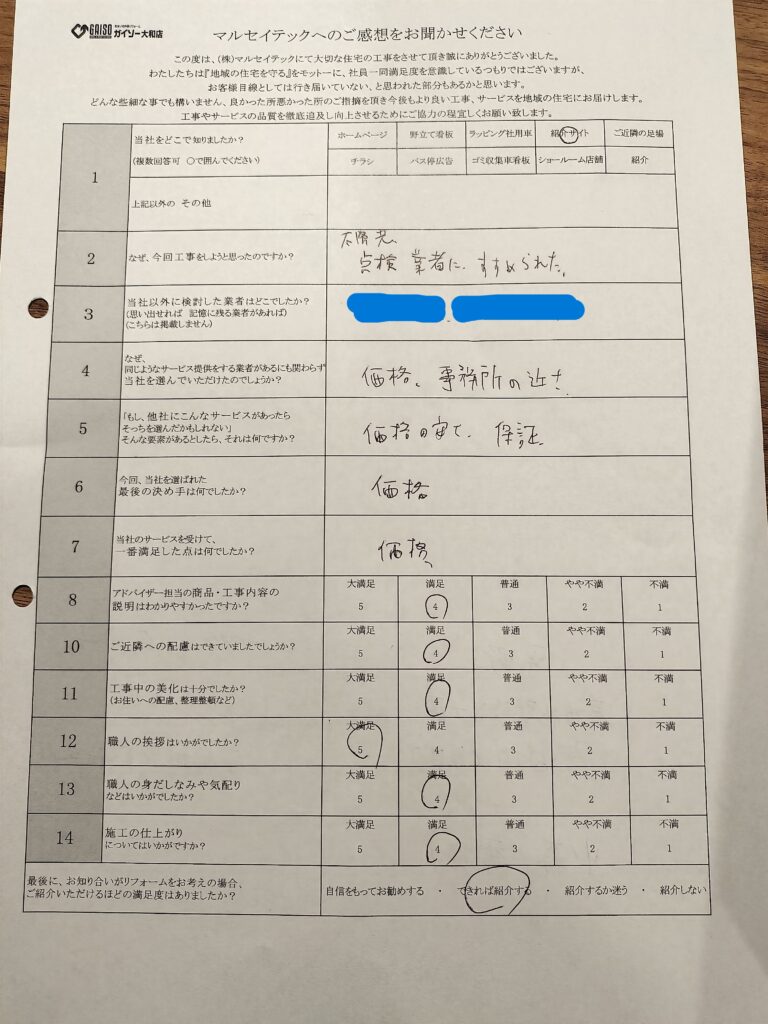 GAISO
ガイソー大和店
マルセイテックへのご感想をお聞かせください
この度は、(株)マルセイテックにて大切な住宅の工事をさせて頂き誠にありがとうございました。
わたしたちは『地域の住宅を守る』をモットーに、社員一同満足度を意識しているつもりではございますが、
お客様目線としては行き届いていない、と思われた部分もあるかと思います。
どんな些細な事でも構いません、良かった所悪かった所のご指摘を頂き今後もより良い工事、サービスを地域の住宅にお届けします。
工事やサービスの品質を徹底追及し向上させるためにご協力の程宜しくお願い致します。
1
当社をどこで知りましたか?
(複数回答可 ○で囲んでください)
ホームページ 野立て看板 ラッピング社用車 紹介サイト ご近隣の足場
チラシ バス停広告 ゴミ収集車看板 ショールーム店舗 紹介
上記以外の その他
2 なぜ、今回工事をしようと思ったのですか?
太陽光、
点検 業者に、すすめられた。
3
当社以外に検討した業者はどこでしたか?
(思い出せれば 記憶に残る業者があれば)
(こちらは掲載しません)
4
なぜ、
同じようなサービス提供をする業者があるにも関わらず
当社を選んでいただけたのでしょうか?
価格、事務所の近さ
5
「もし、他社にこんなサービスがあったら
そっちを選んだかもしれない」
そんな要素があるとしたら、それは何ですか?
価格の安さ、保証
6
今回、当社を選ばれた
最後の決め手は何でしたか?
価格
7
当社のサービスを受けて、
一番満足した点は何でしたか?
価格、
8
アドバイザー担当の商品・工事内容の
説明はわかりやすかったですか?
大満足 満足 普通 やや不満 不満
5 4 3 2 1
10 ご近隣への配慮はできていましたでしょうか?
大満足 満足 普通 やや不満 不満
5 4 3 2 1
11
工事中の美化は十分でしたか?
(お住いへの配慮、整理整頓など)
大満足 満足 普通 やや不満 不満
5 4 3 2 1
12 職人の挨拶はいかがでしたか?
大満足 満足 普通 やや不満 不満
5 4 3 2 1
13
職人の身だしなみや気配り
などはいかがでしたか?
大満足 満足 普通 やや不満 不満
5 4 3 2 1
14
施工の仕上がり
についてはいかがですか?
大満足 満足 普通 やや不満 不満
5 4 3 2 1
最後に、お知り合いがリフォームをお考えの場合、
ご紹介いただけるほどの満足度はありましたか?
自信をもってお勧めする ・ できれば紹介する ・ 紹介するか迷う ・ 紹介しない